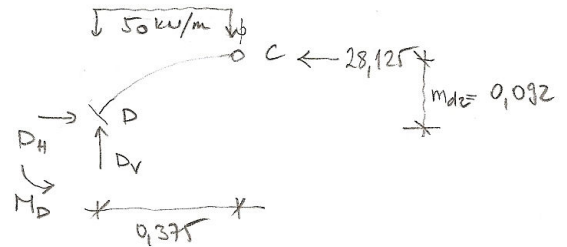 50 kN/m
C ← 28,125
m_dz = 0,092
D
D_H
D_V
M_D
0,375